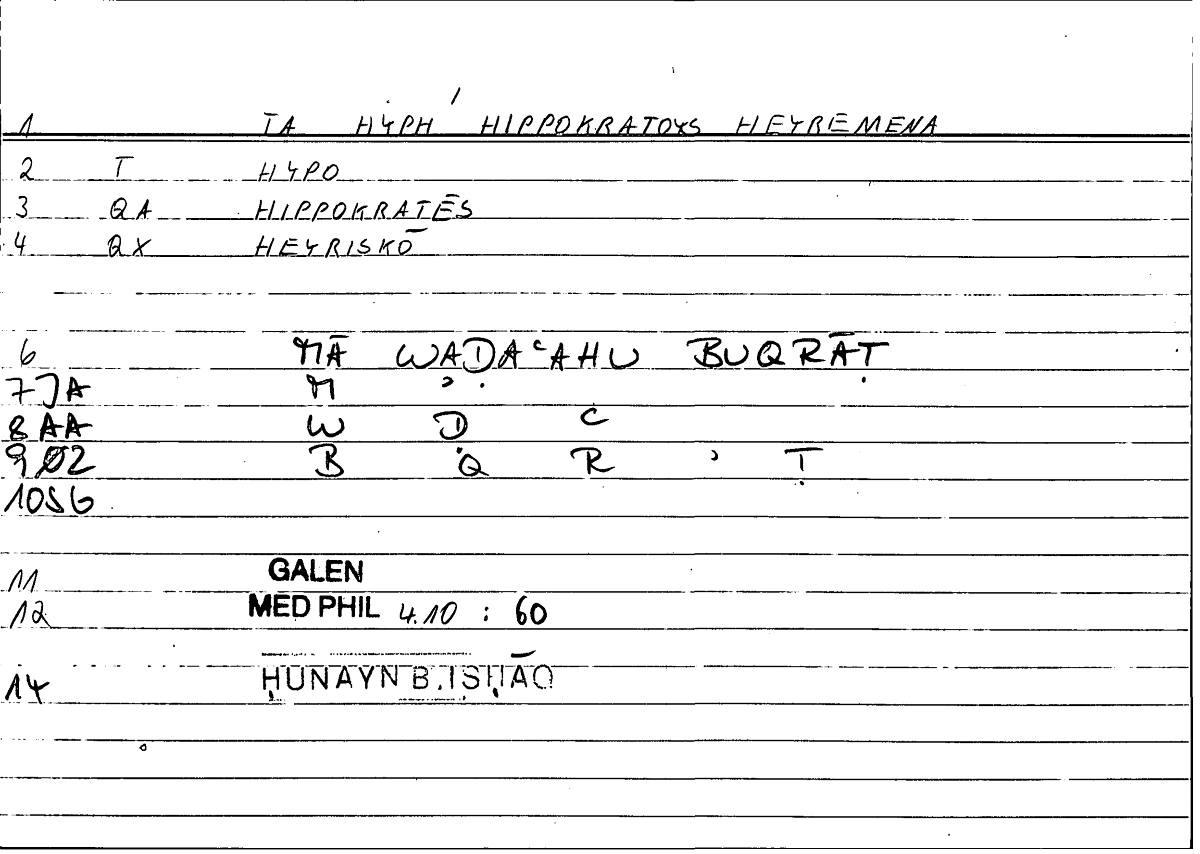 1 TA HYPH' HIPPOKRATOYS HEYRĒMENA
2 T HYPO
3 QA HIPPOKRATĒS
4 QX HEYRISKŌ
6 MĀ WAḌAʿAHU BUQRĀṬ
7 JA M ʾ
8 AA W Ḍ ʿ
9 Ø2 B Q R ʾ Ṭ
10 SG
11 GALEN
12 MED PHIL 4.10 : 60
14 ḤUNAYN B. ISḤĀQ